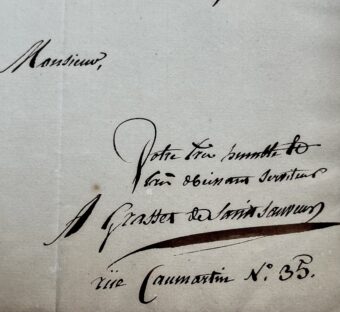 Monsieur,
Votre très humble et
très obéissant serviteur
A Grasset de Saint Sauveur
rüe Caumartin N.° 35.